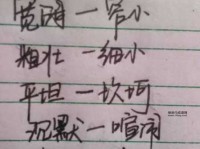 宽阔—窄小
粗壮—细小
平坦—坎坷
沉默—喧闹